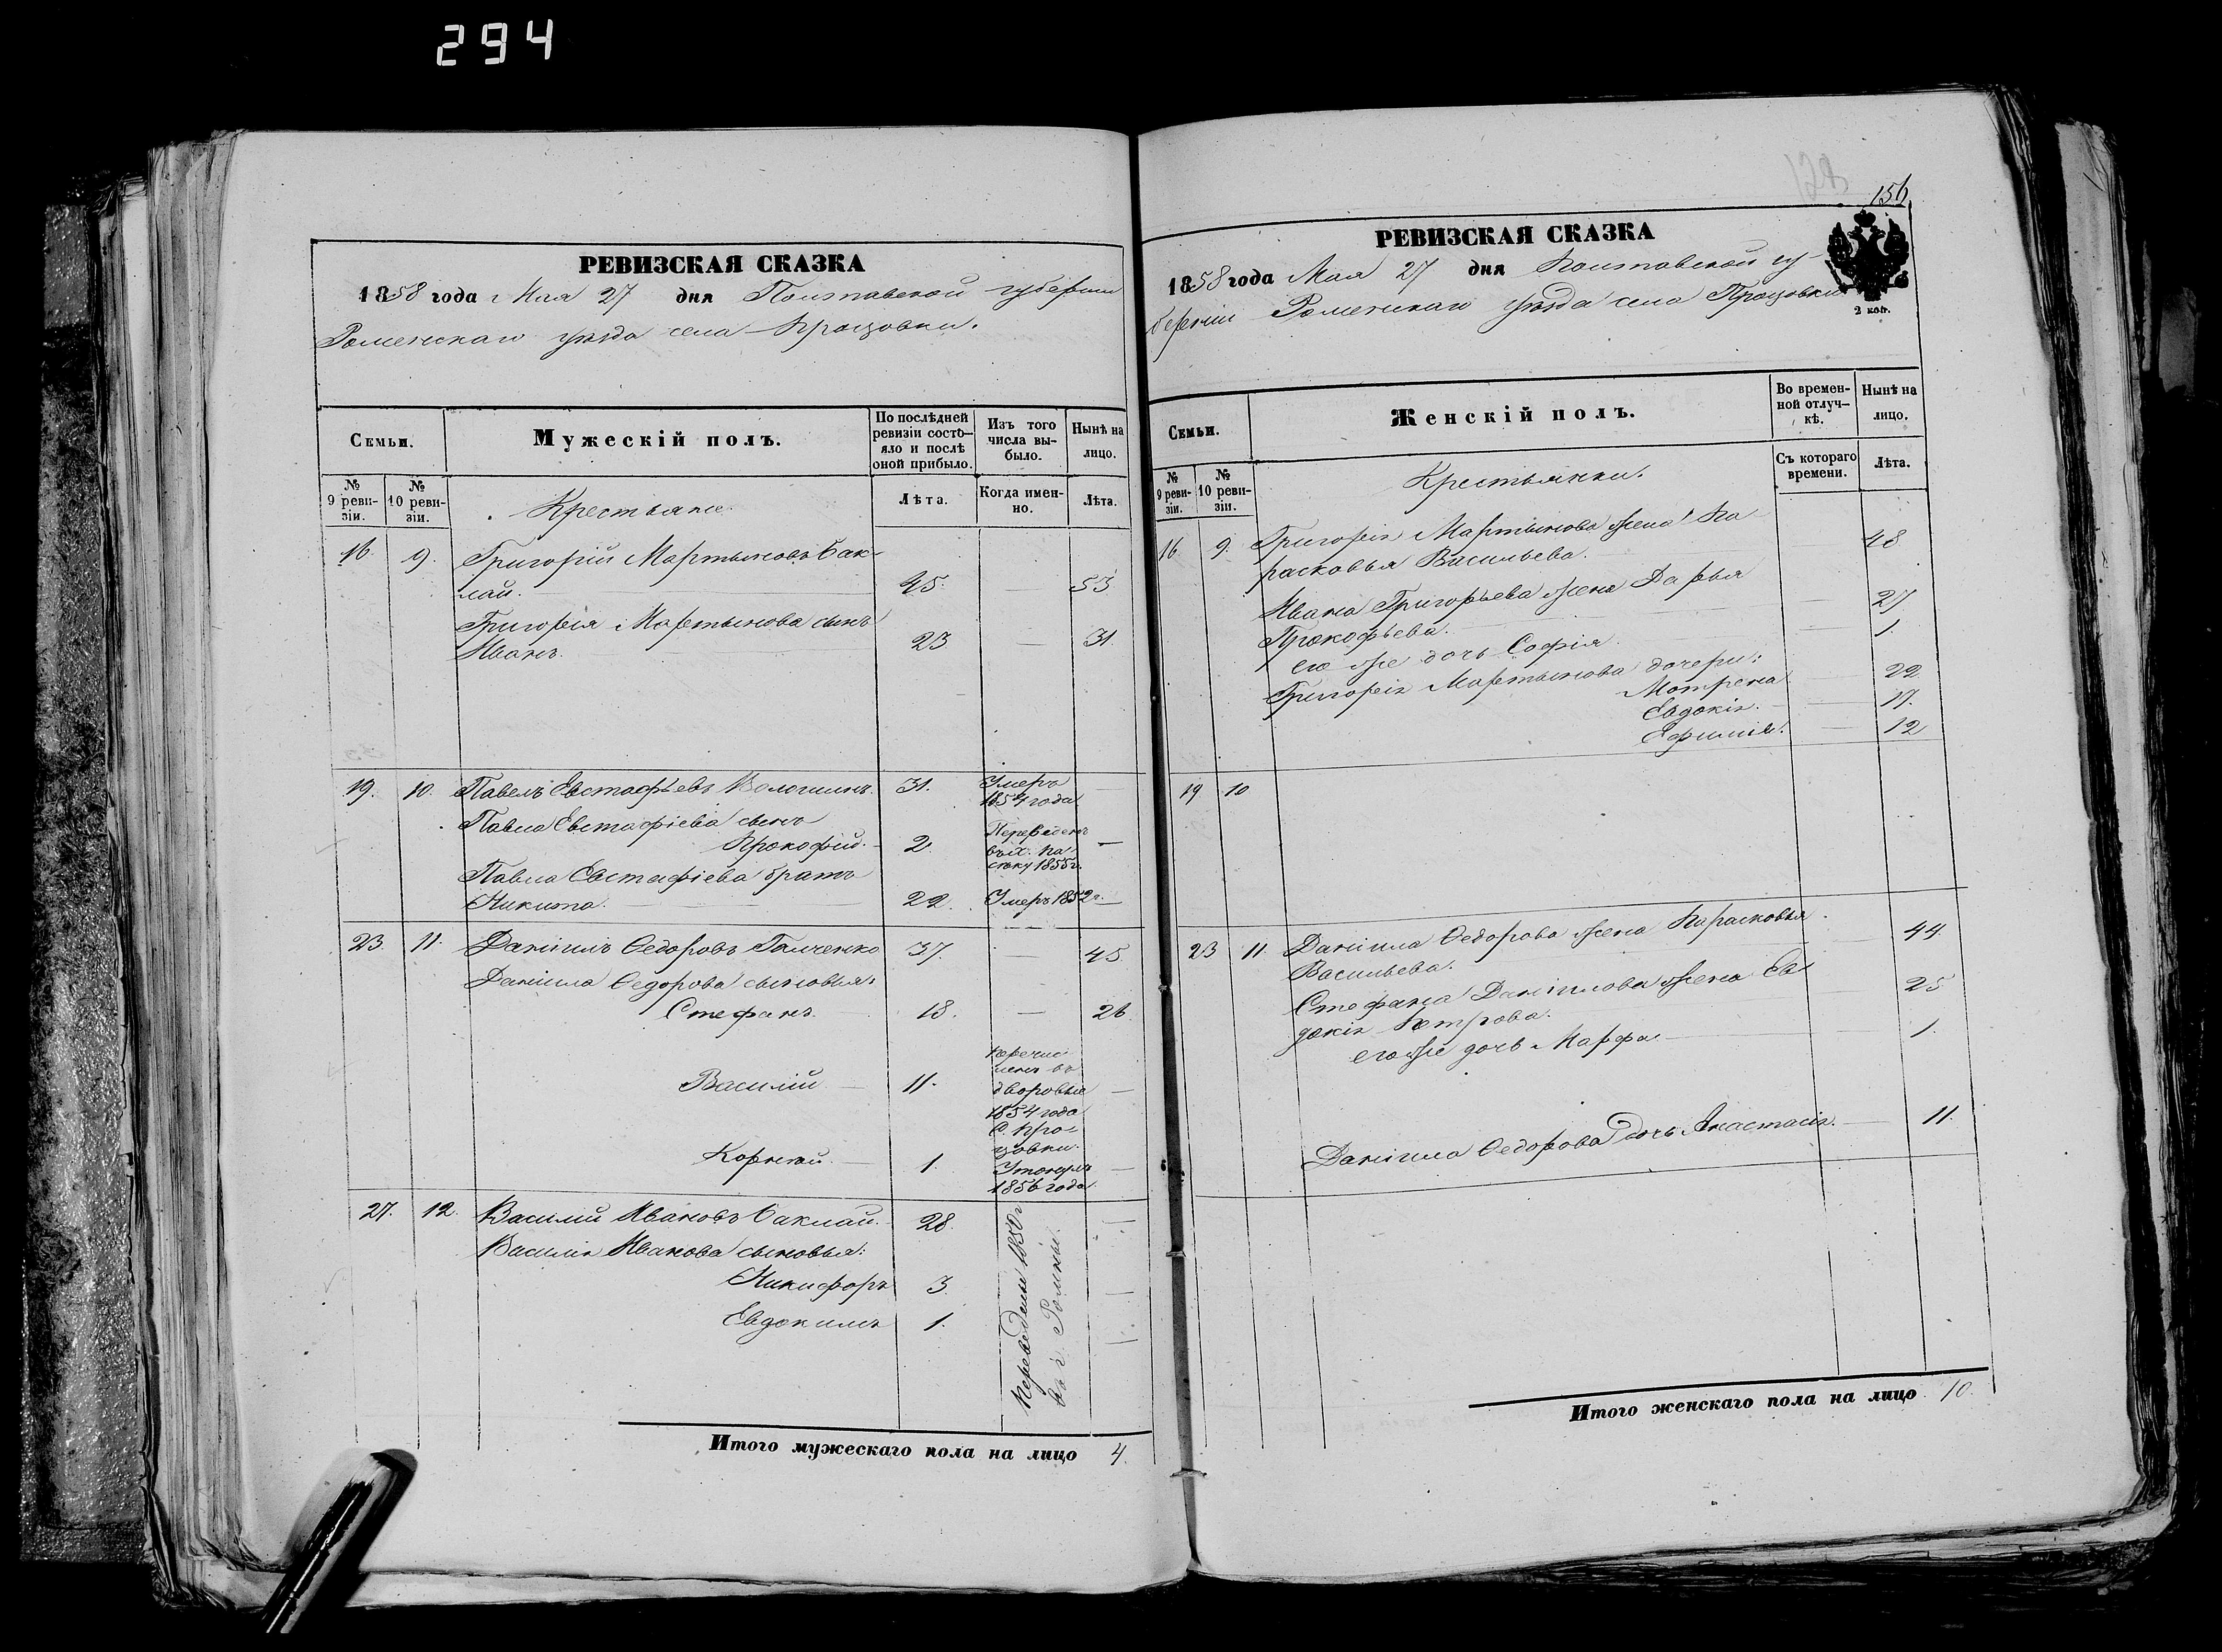 294
РЕВИЗСКАЯ СКАЗКА
1858 года Мая 27 дня Полтавской губернии
Роменскаго уѣзда села Процовки.
Семьи.
Мужескій полъ.
По послѣдней ревизіи состо-
яло и послѣ оной прибыло.
Изъ того числа вы-
было.
Нынѣ на лицо.
№ 9 реви-
зіи.
№ 10 реви-
зіи.
Крестьяне.
Лѣта.
Когда имен-
но.
Лѣта.
16. 9. Григорій Мартыновъ Бак-
лай. 45. — 53
Григорія Мартынова сынъ
Иванъ. 23 — 31.
19. 10. Павелъ Евстафьевъ Волошинъ. 31. Умеръ —
1854 года
Павла Евстафіева сынъ
Прокофій. 2. Переведенъ
въ х. Па-
сѣку 1855 г. —
Павла Евстафіева братъ
Никита. 22. Умеръ 1852 г. —
23 11. Даніилъ Федоровъ Галченко 37. — 45.
Даніила Федорова сыновья:
Стефанъ. 18. — 26
Василій 11. Перечис-
ленъ въ
дворовые
1854 года
С. Про-
цовки. —
Корней. 1. Утонулъ
1856 года —
27. 12. Василій Ивановъ Баклай. 28. —
Василія Иванова сыновья:
Никифоръ 3. —
Евдокимъ 1. —
Переведены 1850 г.
въ г. Ромны.
Итого мужескаго пола на лицо 4.
156
РЕВИЗСКАЯ СКАЗКА
1858 года Мая 27 дня Полтавской гу-
берніи Роменскаго уѣзда села Процовки
2 коп.
Семьи.
Женскій полъ.
Во времен-
ной отлуч-
кѣ.
Нынѣ на
лицо.
№ 9 реви-
зіи.
№ 10 реви-
зіи.
Крестьянки.
Съ котораго
времени.
Лѣта.
16 9. Григорія Мартынова жена Па-
расковья Васильева. — 48
Ивана Григорьева жена Дарья
Прокофьева. — 27
его же дочь Софія. — 1.
Григорія Мартынова дочери:
Мотрена — 22
Евдокія. — 17.
Ефимія. — 12
19 10
23 11. Даніила Федорова жена Парасковья
Васильева. — 44.
Стефана Даніилова жена Ев-
докія Петрова. — 25
его же дочь Марфа. — 1.
Даніила Федорова дочь Анастасія. — 11.
Итого женскаго пола на лицо 10.